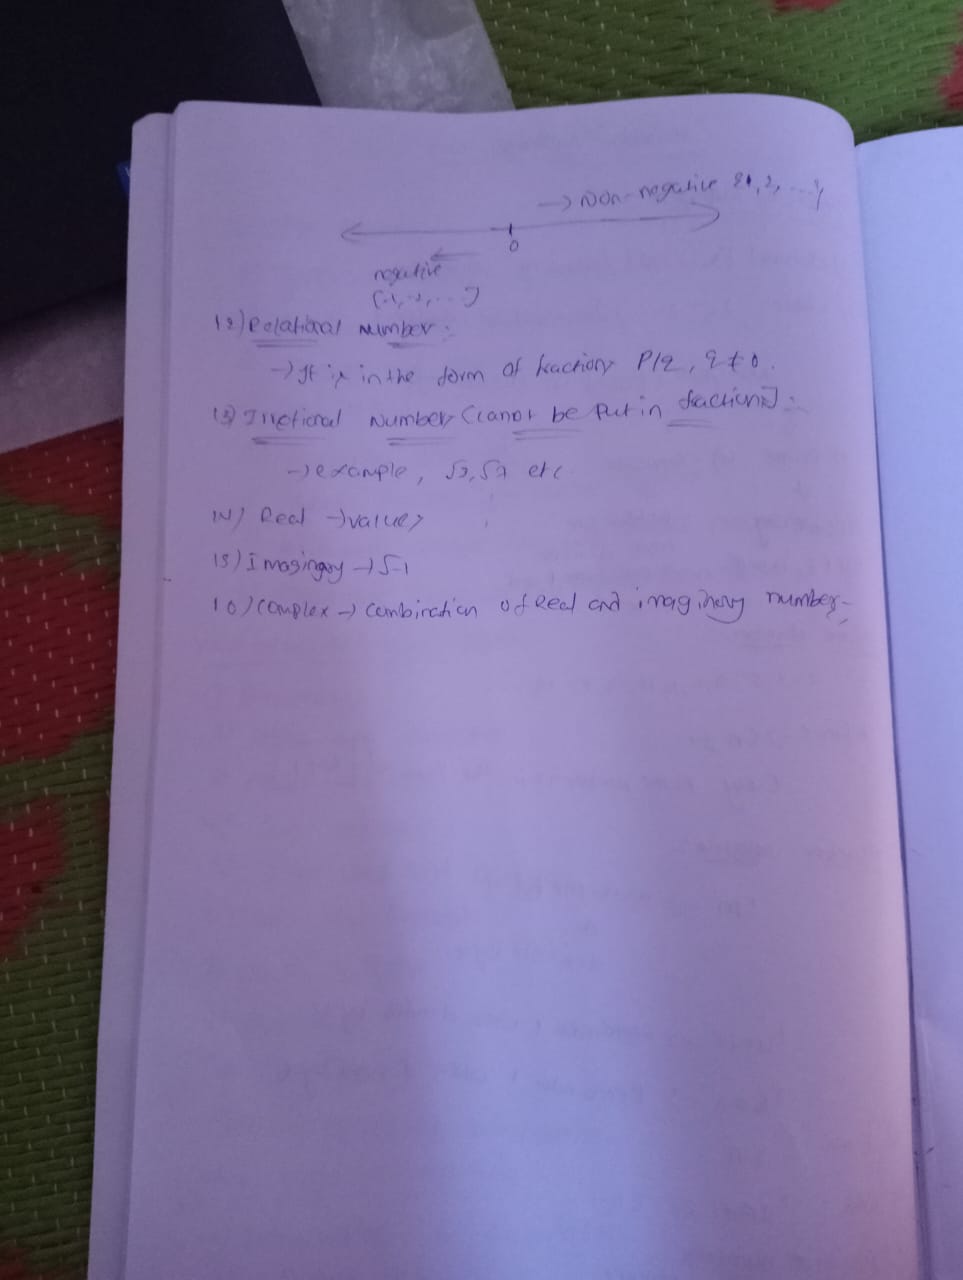 → Non-negative {1, 2, ...}
0
negative
{-1, -2, ...}
12) Relational Number:
→ It is in the form of fraction P/q, q ≠ 0.
13) Irrational Number (cannot be put in fractions):
→ example, √3, √7 etc
14) Real → values
15) Imaginary → √-1
16) complex → combination of Real and imaginary number